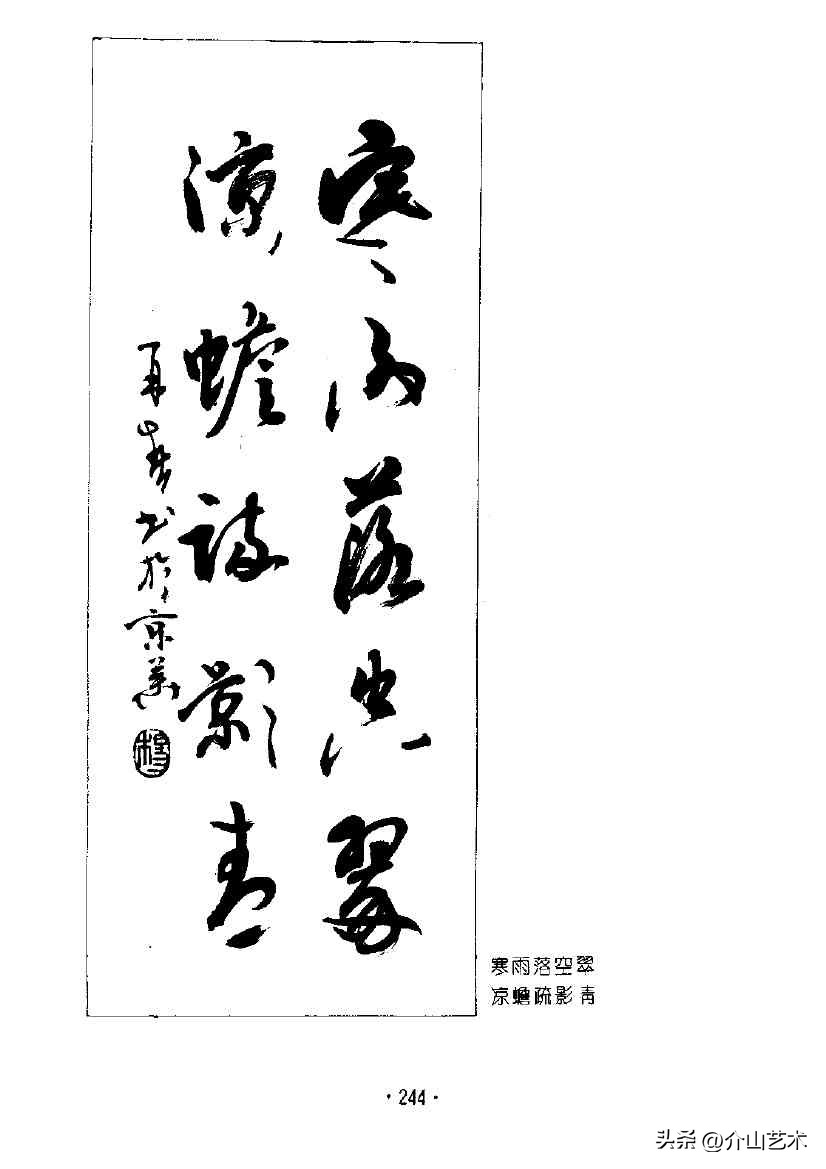 寒雨落空翠
凉蟾疏影青
再春书于京华
寒雨落空翠
凉蟾疏影青
·244·
头条 @介山艺术